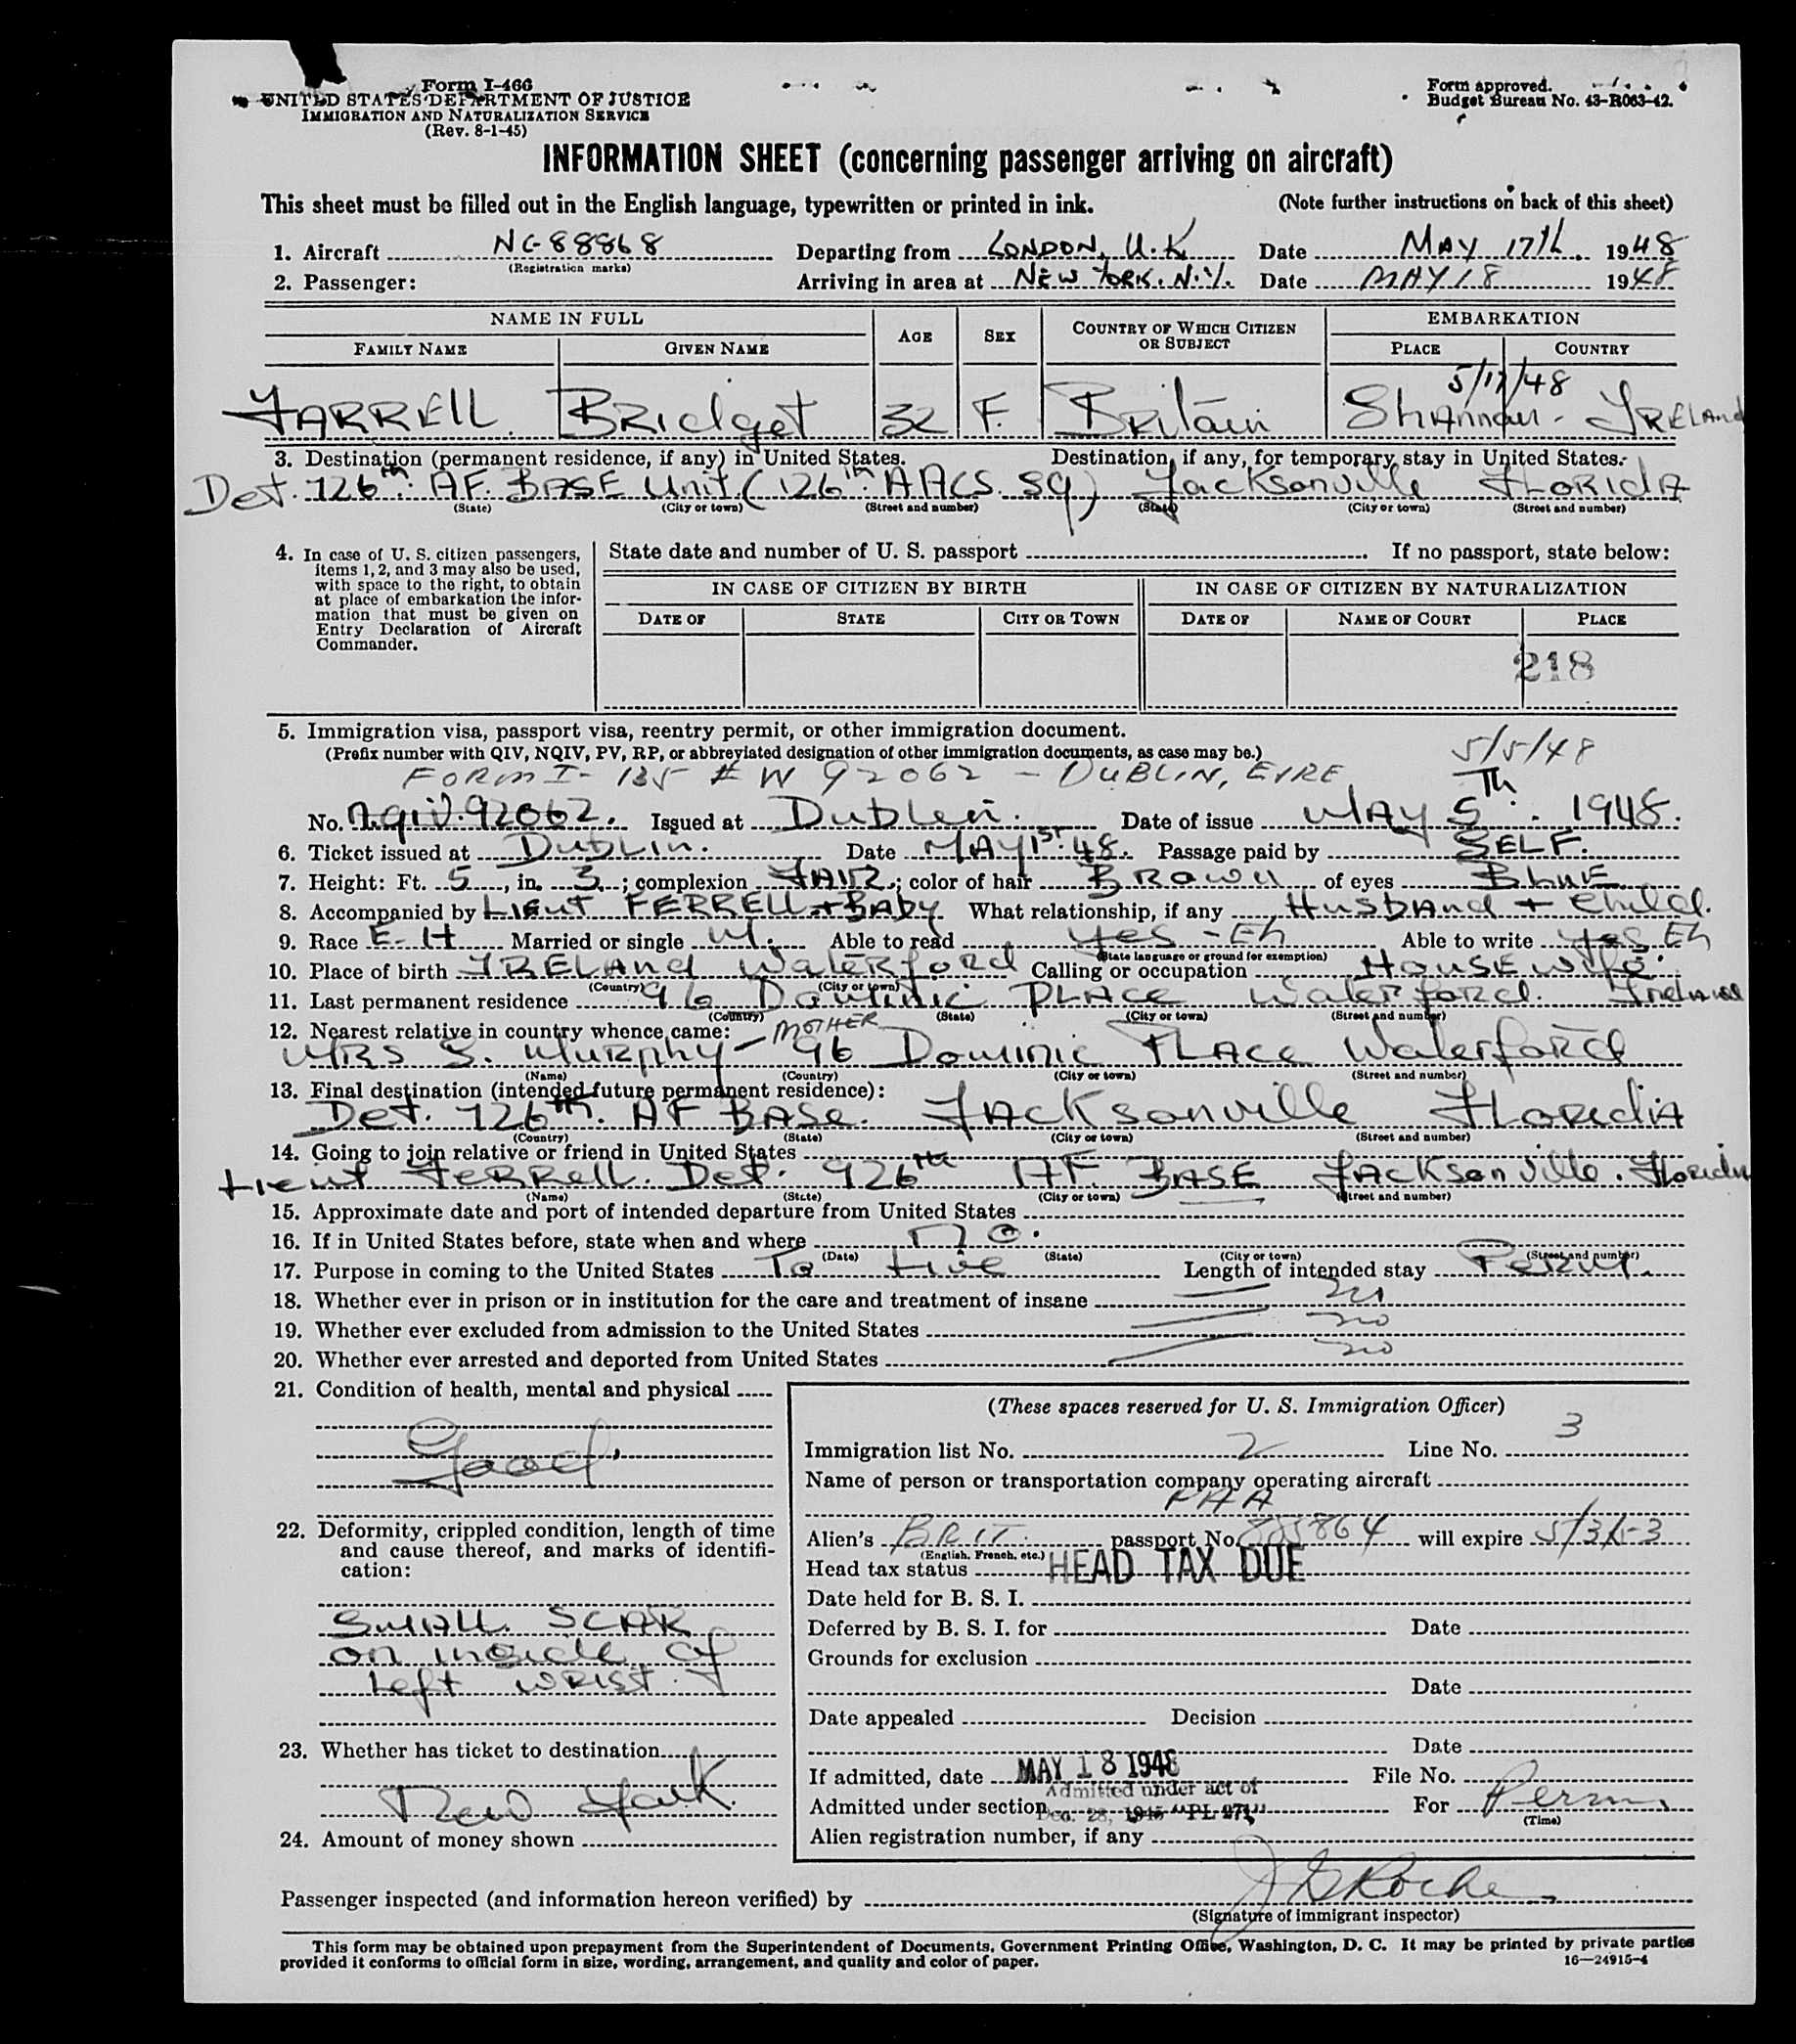 Form I-466
UNITED STATES DEPARTMENT OF JUSTICE
IMMIGRATION AND NATURALIZATION SERVICE
(Rev. 8-1-45)
Form approved.
Budget Bureau No. 43-R063-42.
INFORMATION SHEET (concerning passenger arriving on aircraft)
This sheet must be filled out in the English language, typewritten or printed in ink. (Note further instructions on back of this sheet)
1. Aircraft NC-88868 Departing from LONDON, U.K Date MAY 17th. 1948
(Registration marks)
2. Passenger: Arriving in area at NEW YORK. N.Y. Date MAY 18 1948
NAME IN FULL AGE SEX COUNTRY OF WHICH CITIZEN OR SUBJECT EMBARKATION
FAMILY NAME GIVEN NAME PLACE COUNTRY
5/17/48
FARRELL. Bridget 32 F. Britain Shannon - IRELAND
3. Destination (permanent residence, if any) in United States. Destination, if any, for temporary stay in United States.
Det. 726th. AF. BASE Unit. (126th. AACS. SQ) Jacksonville FLORIDA
(State) (City or town) (Street and number) (State) (City or town) (Street and number)
4. In case of U. S. citizen passengers, items 1, 2, and 3 may also be used, with space to the right, to obtain at place of embarkation the information that must be given on Entry Declaration of Aircraft Commander.
State date and number of U. S. passport If no passport, state below:
IN CASE OF CITIZEN BY BIRTH IN CASE OF CITIZEN BY NATURALIZATION
DATE OF STATE CITY OR TOWN DATE OF NAME OF COURT PLACE
218
5. Immigration visa, passport visa, reentry permit, or other immigration document.
(Prefix number with QIV, NQIV, PV, RP, or abbreviated designation of other immigration documents, as case may be.) 5/5/48
FORM I-135 # W 92062 - DUBLIN, EIRE
No. N.qiv.92062. Issued at Dublin. Date of issue MAY 5Th. 1948.
6. Ticket issued at DUBLIN. Date MAY 1st. 48. Passage paid by SELF.
7. Height: Ft. 5, in. 3; complexion FAIR; color of hair BROWN of eyes BLUE
8. Accompanied by Lieut FERRELL + BABY What relationship, if any Husband + Child.
9. Race E-H Married or single M. Able to read Yes - Eh Able to write Yes Eh
(State language or ground for exemption)
10. Place of birth IRELAND Waterford Calling or occupation Housewife.
(Country) (City or town)
11. Last permanent residence 96 Dominic PLACE Waterford. Ireland
(Country) (State) (City or town) (Street and number)
12. Nearest relative in country whence came: MOTHER
MRS S. Murphy - 96 Dominic PLACE Waterford
(Name) (Country) (City or town) (Street and number)
13. Final destination (intended future permanent residence):
Det. 726th. AF BASE. JACKsonville FLoridiA
(Country) (State) (City or town) (Street and number)
14. Going to join relative or friend in United States
Lieut FERRELL. Det. 926th AF. BASE JACKsonville. Florida
(Name) (State) (City or town) (Street and number)
15. Approximate date and port of intended departure from United States
16. If in United States before, state when and where no.
(Date) (State) (City or town) (Street and number)
17. Purpose in coming to the United States To Live Length of intended stay Perm.
18. Whether ever in prison or in institution for the care and treatment of insane no
19. Whether ever excluded from admission to the United States no
20. Whether ever arrested and deported from United States no
21. Condition of health, mental and physical
Good.
22. Deformity, crippled condition, length of time and cause thereof, and marks of identification:
SMALL SCAR
on inside of
Left WRIST.
23. Whether has ticket to destination
New York.
24. Amount of money shown
(These spaces reserved for U. S. Immigration Officer)
Immigration list No. 2 Line No. 3
Name of person or transportation company operating aircraft
PAA
Alien's BRIT. passport No. 885864 will expire 5/3/53
(English, French, etc.)
Head tax status HEAD TAX DUE
Date held for B. S. I.
Deferred by B. S. I. for Date
Grounds for exclusion
Date
Date appealed Decision
Date
If admitted, date MAY 18 1948 File No.
Admitted under act of
Admitted under section Dec. 28, 1945 "PL-271" For Perm.
(Time)
Alien registration number, if any
Passenger inspected (and information hereon verified) by J G Roche
(Signature of immigrant inspector)
This form may be obtained upon prepayment from the Superintendent of Documents, Government Printing Office, Washington, D. C. It may be printed by private parties
provided it conforms to official form in size, wording, arrangement, and quality and color of paper. 16—24915-4